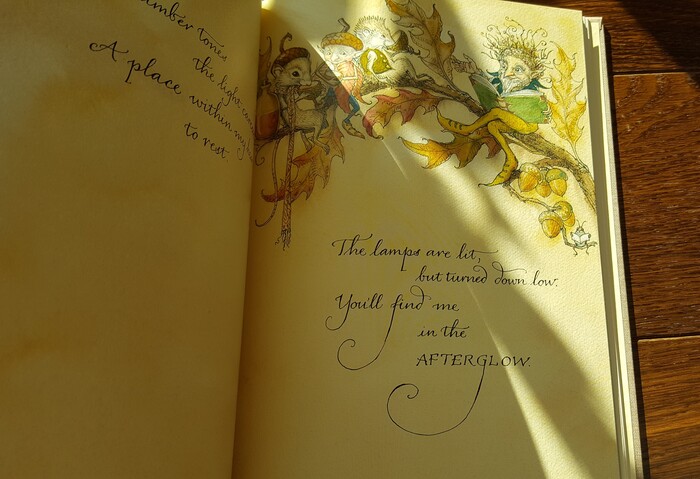 amber tones
the light
A place within my
to rest.
The lamps are lit,
but turned down low.
You'll find me
in the
AFTERGLOW.